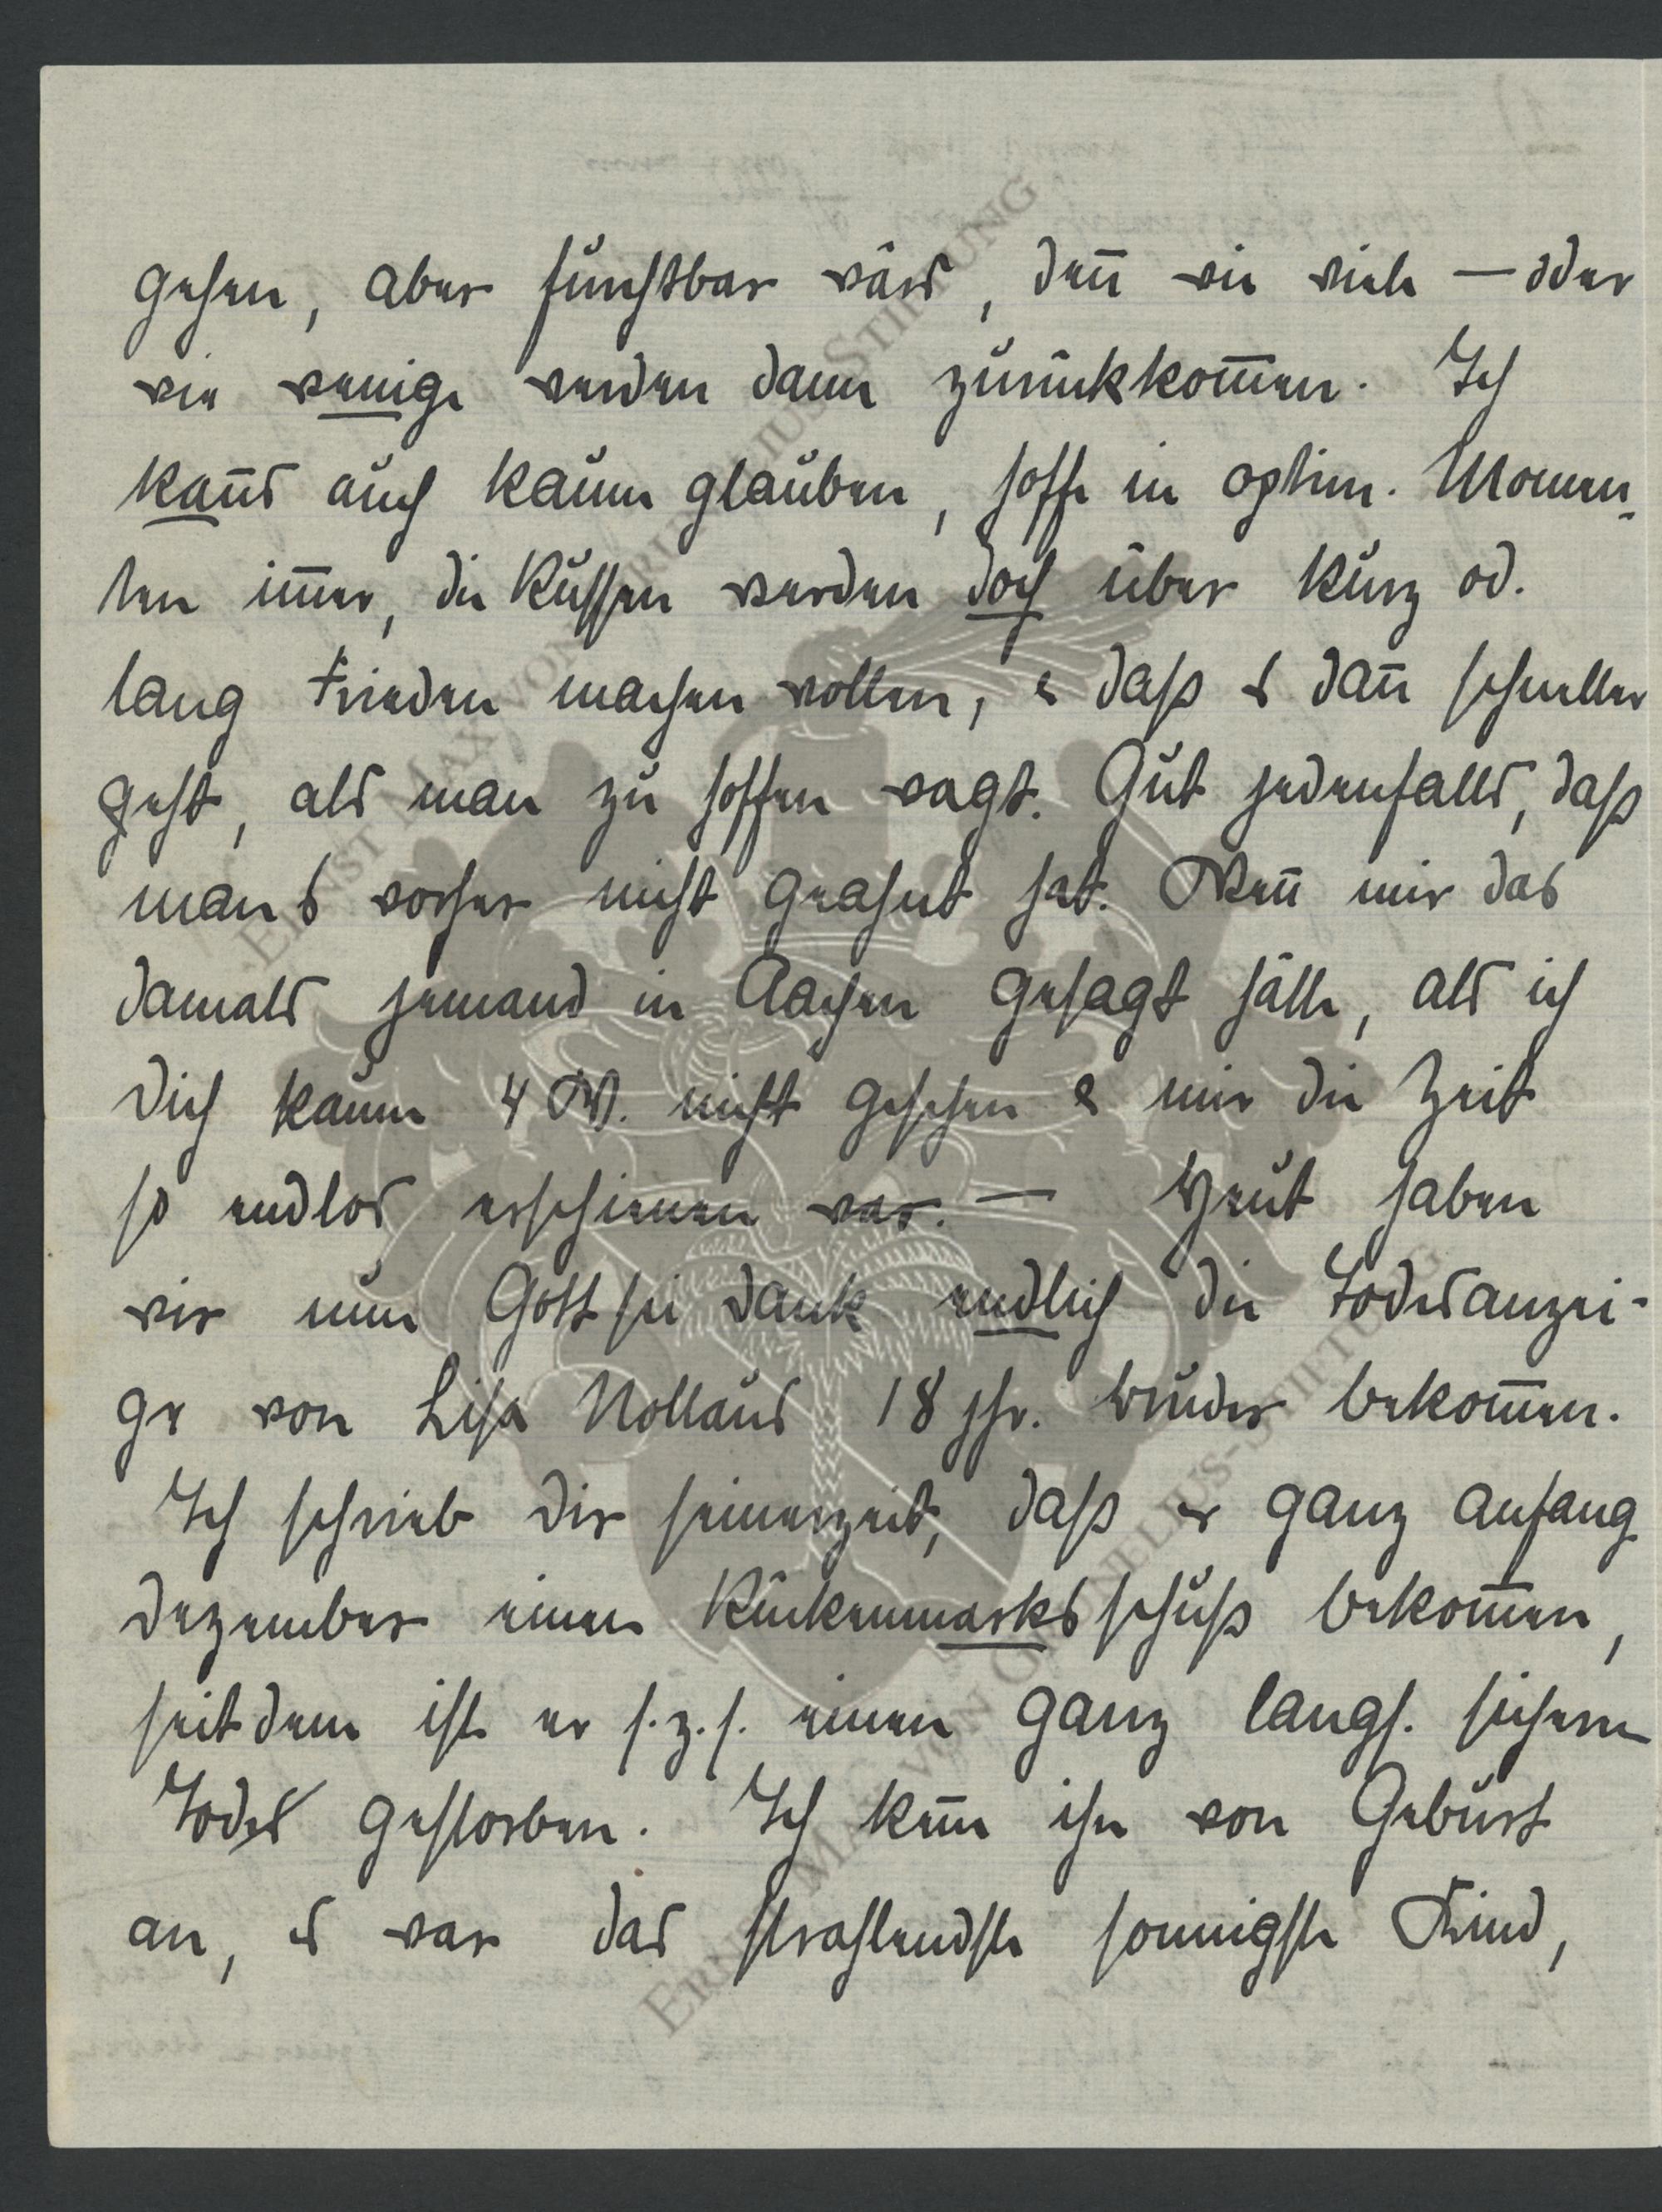 gehen, aber furchtbar wärs, denn̅ wie viele — oder
wie wenige werden dann zurückkom̅en. Ich
kan̅s auch kaum glauben, hoffe in optim. Momen-
ten im̅er, die Russen werden doch über kurz od.
lang Frieden machen wollen, & daß es dan̅ schneller
geht, als man zu hoffen wagt. Gut jedenfalls, daß
mans vorher nicht geahnt hat. Wen̅ mir das
damals jemand in Aachen gesagt hätte, als ich
Dich kaum 4 W. nicht gesehen & mir die Zeit
so endlos erschienen war. — Heut haben
wir nun Gott sei Dank endlich die Todesanzei-
ge von Lisa Nollaus 18 jhr. Bruder bekom̅en.
Ich schrieb Dir seinerzeit, daß er ganz anfang
Dezember einen Rückenmarksschuß bekom̅en,
seitdem ist er s.z.s. einen ganz langs. sichern
Tod gestorben. Ich ken̅ ihn von Geburt
an, es war das strahlendste sonnigste Kind,
ERNST MAX VON GRUNELIUS-STIFTUNG
ERNST MAX VON GRUNELIUS-STIFTUNG